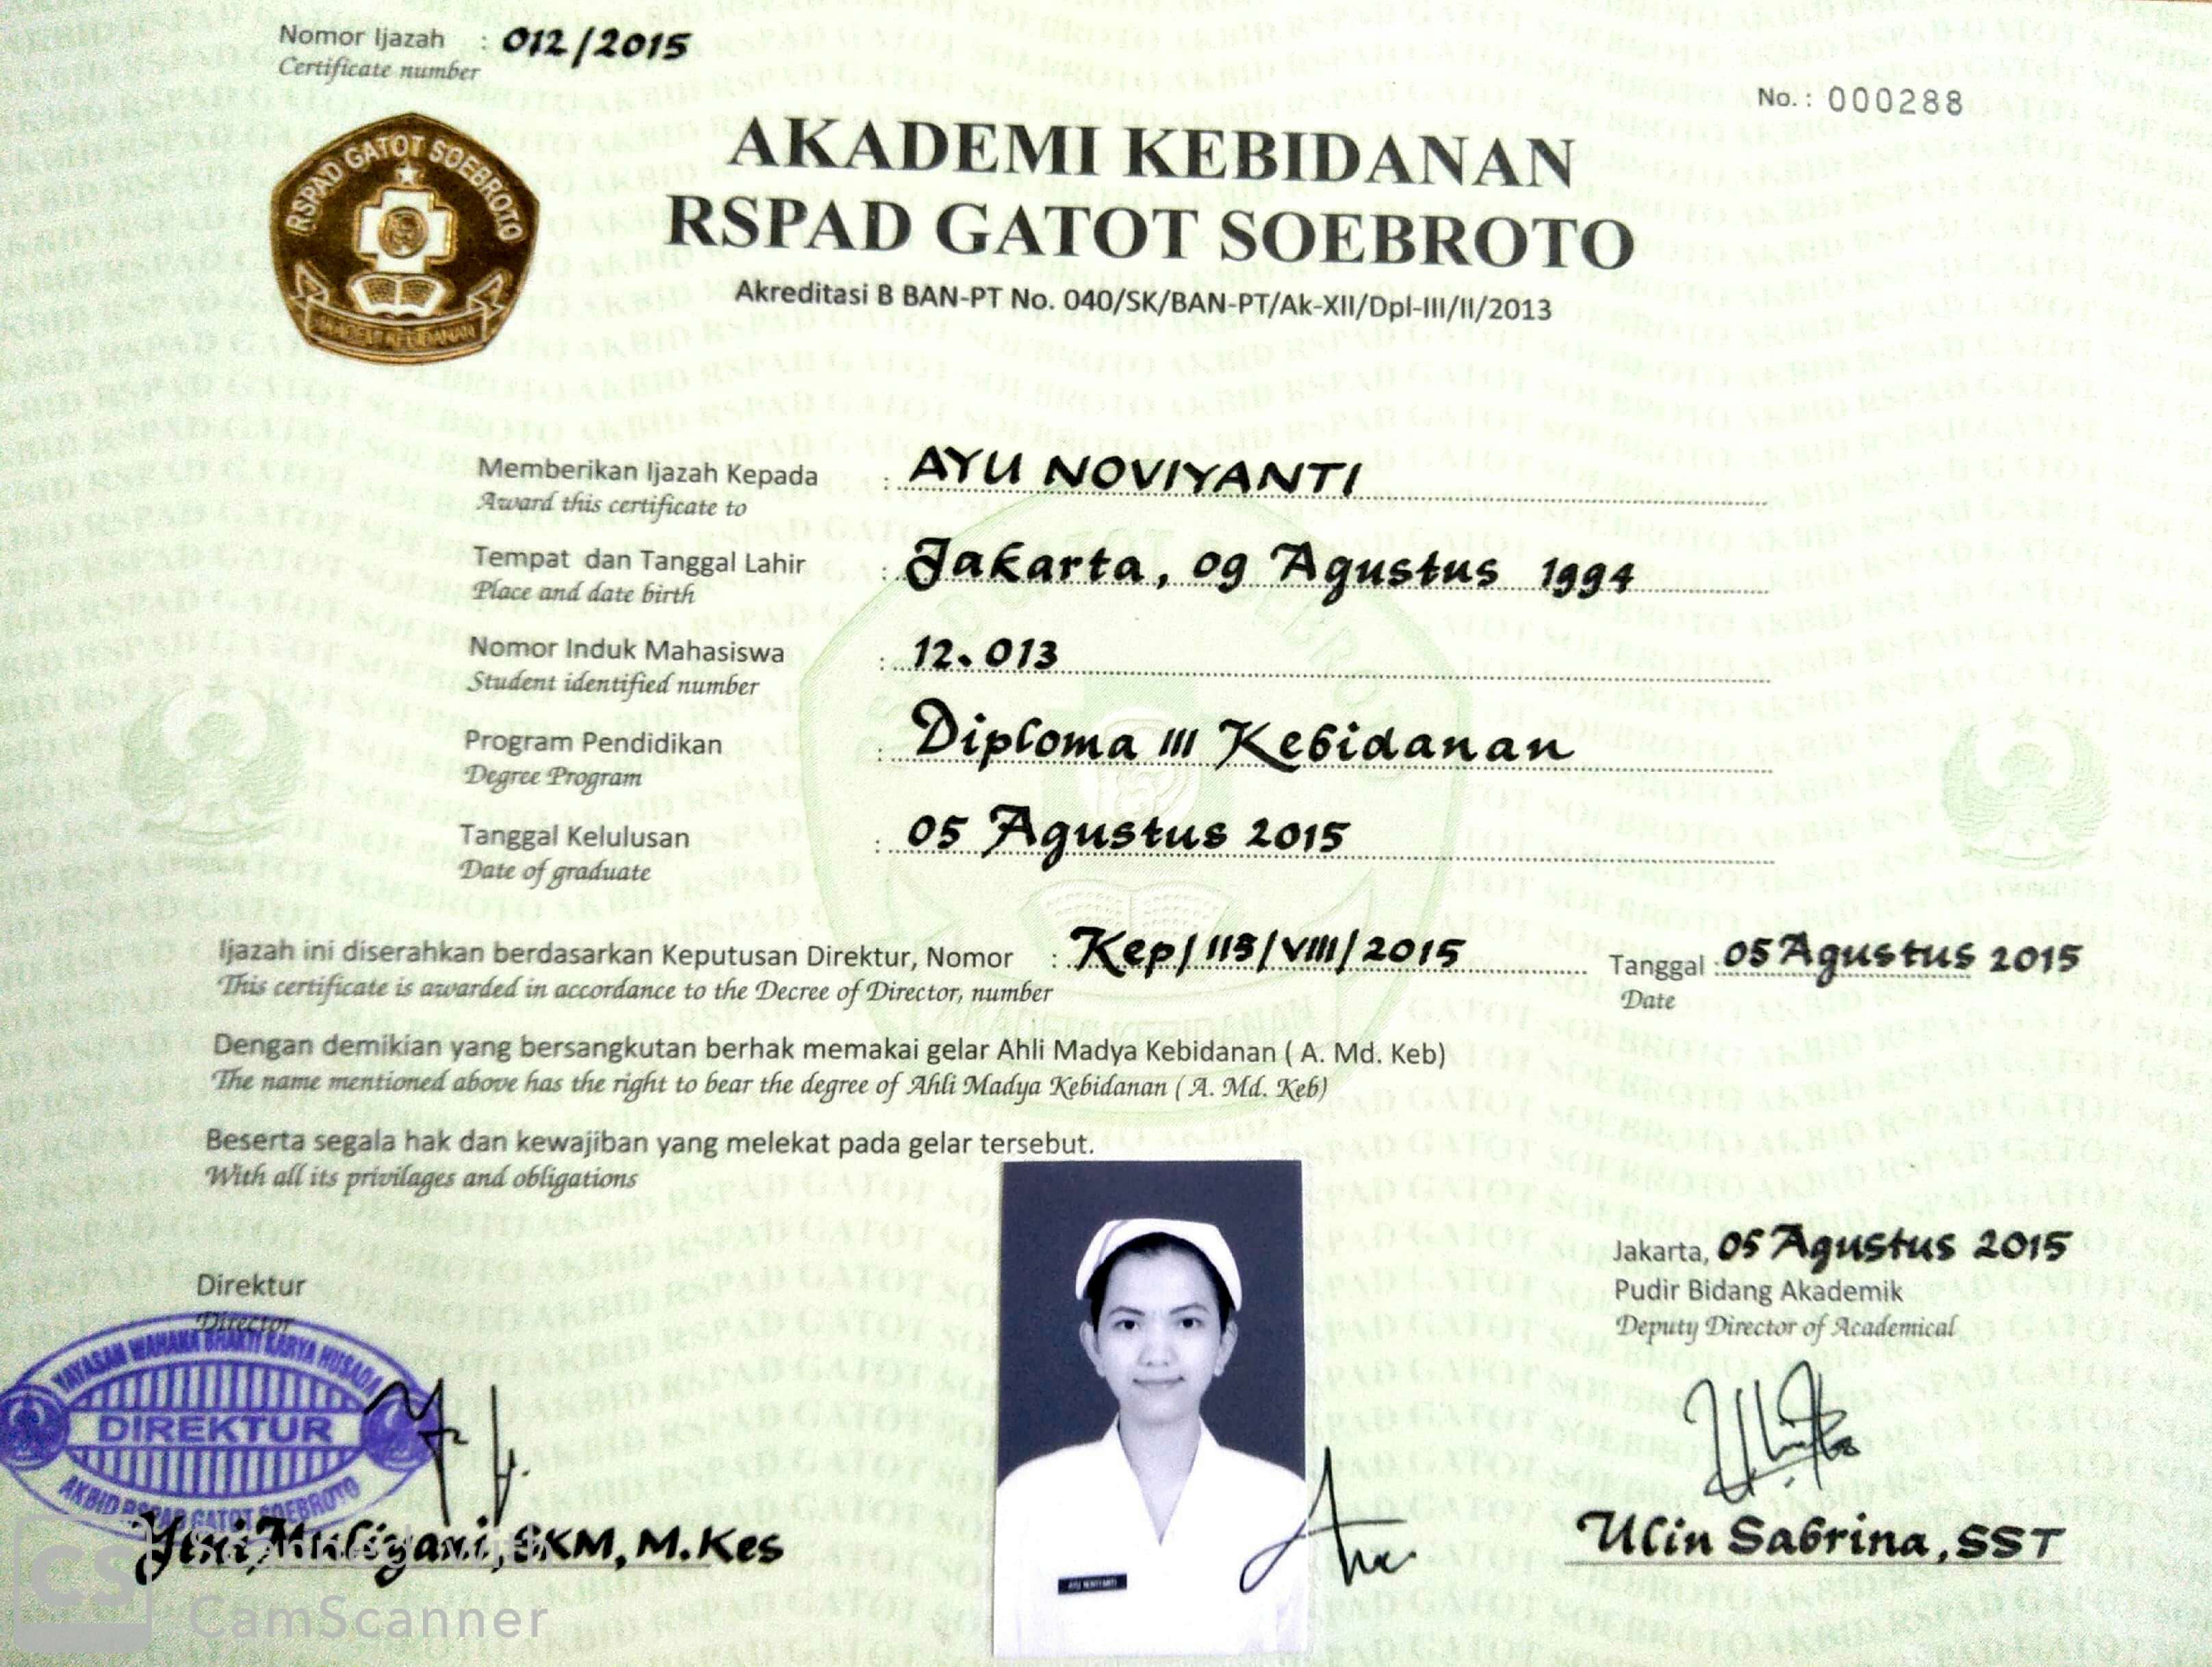 Nomor Ijazah : 012/2015
Certificate number
No. : 000288
RSPAD GATOT SOEBROTO
AKADEMI KEBIDANAN
AKADEMI KEBIDANAN
RSPAD GATOT SOEBROTO
Akreditasi B BAN-PT No. 040/SK/BAN-PT/Ak-XII/Dpl-III/II/2013
Memberikan Ijazah Kepada : AYU NOVIYANTI
Award this certificate to
Tempat dan Tanggal Lahir : Jakarta, 09 Agustus 1994
Place and date birth
Nomor Induk Mahasiswa : 12.013
Student identified number
Program Pendidikan : Diploma III Kebidanan
Degree Program
Tanggal Kelulusan : 05 Agustus 2015
Date of graduate
Ijazah ini diserahkan berdasarkan Keputusan Direktur, Nomor : Kep/115/VIII/2015 Tanggal : 05 Agustus 2015
This certificate is awarded in accordance to the Decree of Director, number Date
Dengan demikian yang bersangkutan berhak memakai gelar Ahli Madya Kebidanan ( A. Md. Keb)
The name mentioned above has the right to bear the degree of Ahli Madya Kebidanan ( A. Md. Keb)
Beserta segala hak dan kewajiban yang melekat pada gelar tersebut.
With all its privilages and obligations
Jakarta, 05 Agustus 2015
Direktur
Director
Pudir Bidang Akademik
Deputy Director of Academical
YAYASAN WAHANA BHAKTI KARYA HUSADA
DIREKTUR
AKBID RSPAD GATOT SOEBROTO
SKM, M.Kes
Ulin Sabrina, SST
AYU NOVIYANTI
CS Scanned with
CamScanner